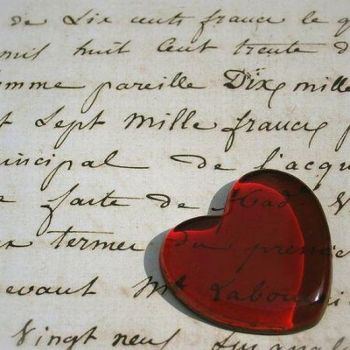 de Dix cents francs le q
mil huit cent trente d
omme pareille Dix mille
t Sept mille francs p
incipal de l'acqu
faite de Mad.e V
termer du premier
evant Me Labou
Vingt neuf